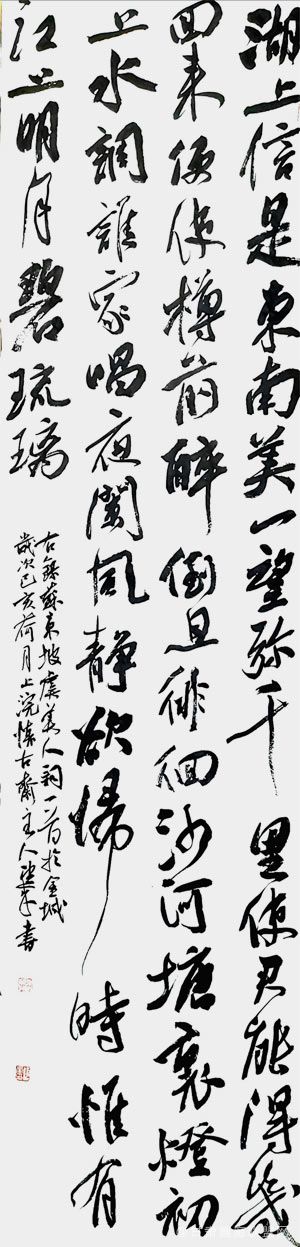 湖上信是東南美一望弥千里使君能得幾
回来便使樽前醉倒且徘徊沙河塘裏燈初
上水調誰家唱夜闌風静欲歸時惟有
江上明月碧琉璃
右錄蘇東坡虞美人詞一首於金城
歲次己亥荷月上浣懷古齋主人書